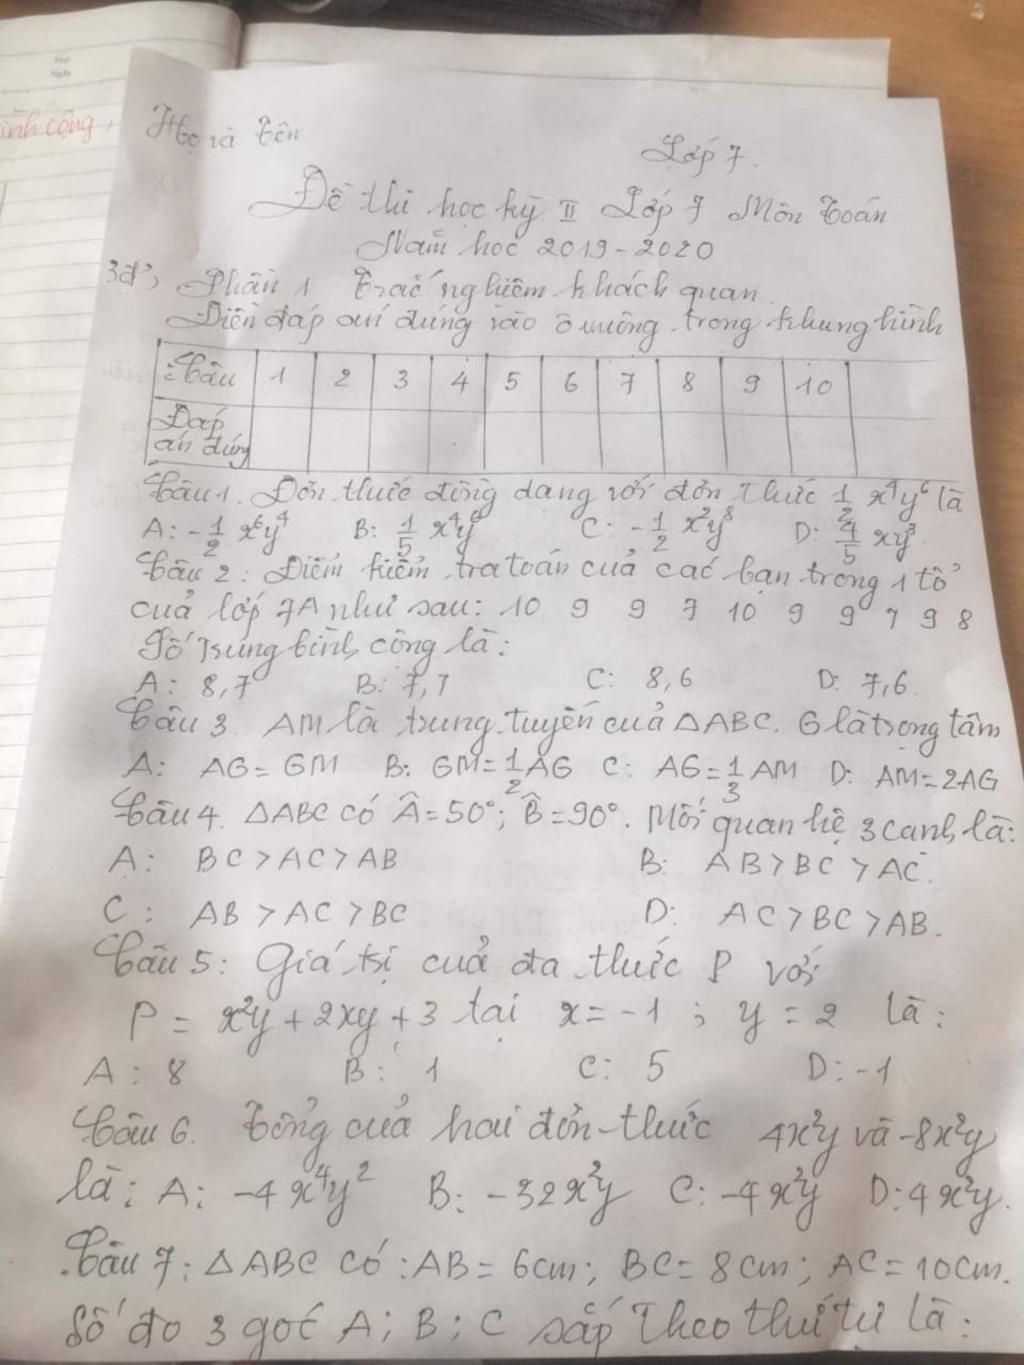 Thứ
Ngày
ình cộng,
Họ và tên
Lớp 7.
Đề thi học kỳ II Lớp 7 Môn Toán
Năm học 2019-2020
3đ, Phần 1 Trắc nghiệm khách quan.
Điền đáp án đúng vào ô vuông trong khung hình
Câu 1 2 3 4 5 6 7 8 9 10
Đáp
án đúng
Câu 1. Đơn thức đồng dạng với đơn thức 1/2 x⁴y⁶ là
A: -1/2 x⁶y⁴ B: 1/5 x⁴y⁶ C: -1/2 x²y⁸ D: 4/5 xy³.
Câu 2: Điểm kiểm tra toán của các bạn trong 1 tổ
của lớp 7A như sau: 10 9 9 7 10 9 9 7 9 8
Số trung bình cộng là:
A: 8,7 B: 7,7 C: 8,6 D: 7,6
Câu 3 AM là trung tuyến của △ABC. G là trọng tâm
A: AG = GM B: GM = 1/2 AG C: AG = 1/3 AM D: AM = 2AG
Câu 4. △ABC có Â = 50°; B̂ = 90°. Mối quan hệ 3 cạnh là:
A: BC > AC > AB B: AB > BC > AC.
C: AB > AC > BC D: AC > BC > AB.
Câu 5: Giá trị của đa thức P với
P = x²y + 2xy + 3 tại x = -1; y = 2 là:
A: 8 B: 1 C: 5 D: -1.
Câu 6. Tổng của hai đơn thức 4x²y và -8x²y
là: A: -4x⁴y² B: -32x²y C: -4x²y D: 4x²y.
Câu 7: △ABC có: AB = 6cm; BC = 8cm; AC = 10cm.
Số đo 3 góc A; B; C sắp theo thứ tự là: